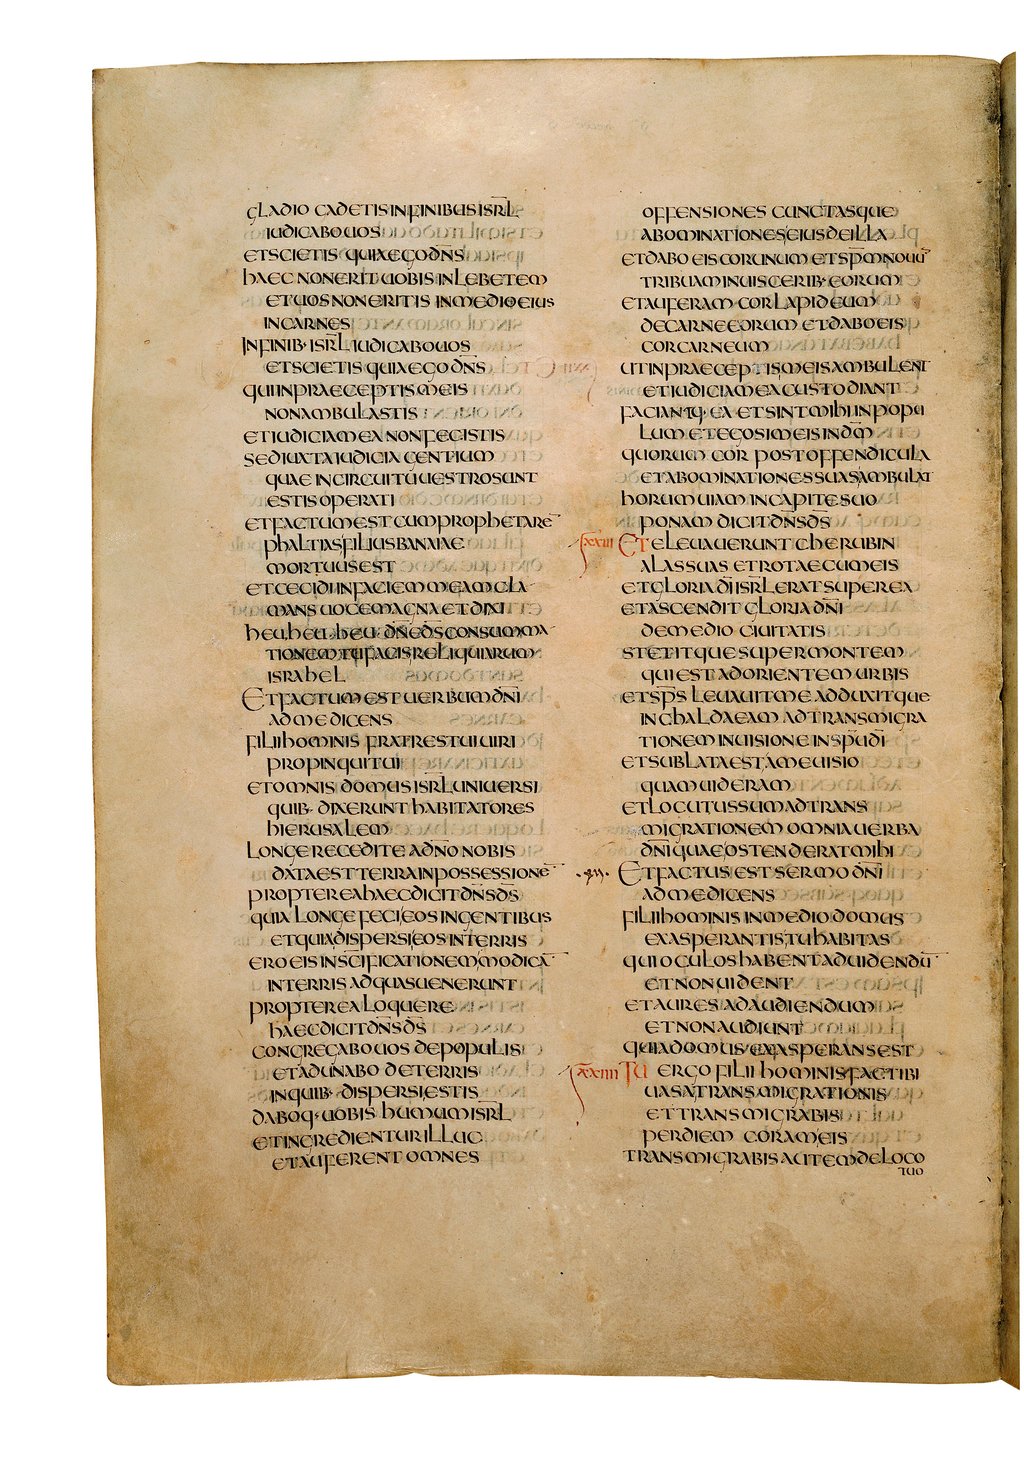 GLADIO CADETIS IN FINIBUS ISR̅L
IUDICABO UOS
ET SCIETIS QUIA EGO DN̅S
HAEC NON ERIT UOBIS IN LEBETEM
ET UOS NON ERITIS IN MEDIO EIUS
IN CARNES
IN FINIB· ISR̅L IUDICABO UOS
ET SCIETIS QUIA EGO DN̅S
QUI IN PRAECEPTIS MEIS
NON AMBULASTIS
ET IUDICIA MEA NON FECISTIS
SED IUXTA IUDICIA GENTIUM
QUAE IN CIRCUITU UESTRO SUNT
ESTIS OPERATI
ET FACTUM EST CUM PROPHETARE̅
PHALTIAS FILIUS BANAIAE
MORTUUS EST
ET CECIDI IN FACIEM MEAM CLA
MANS UOCE MAGNA ET DIXI
HEU· HEU· HEU· DN̅E DS̅ CONSUMMA
TIONEM TU FACIS RELIQUIARUM
ISRAHEL
ET FACTUM EST UERBUM DN̅I
AD ME DICENS
FILII HOMINIS FRATRES TUI UIRI
PROPINQUI TUI
ET OMNIS DOMUS ISR̅L UNIUERSI
QUIB· DIXERUNT HABITATORES
HIERUSALEM
LONGE RECEDITE A DN̅O NOBIS
DATA EST TERRA IN POSSESSIONE̅
PROPTEREA HAEC DICIT DN̅S DS̅
QUIA LONGE FECI EOS IN GENTIBUS
ET QUIA DISPERSI EOS IN TERRIS
ERO EIS IN SC̅IFICATIONEM MODICA̅
IN TERRIS AD QUAS UENERUNT
PROPTEREA LOQUERE
HAEC DICIT DN̅S DS̅
CONGREGABO UOS DE POPULIS
ET ADUNABO DE TERRIS
IN QUIB· DISPERSI ESTIS
DABOQ· UOBIS HUMUM ISR̅L
ET INGREDIENTUR ILLUC
ET AUFERENT OMNES
OFFENSIONES CUNCTASQUE
ABOMINATIONES EIUS DE ILLA
ET DABO EIS COR UNUM ET SP̅M NOUU̅
TRIBUAM IN UISCERIB· EORUM
ET AUFERAM COR LAPIDEUM
DE CARNE EORUM ET DABO EIS
COR CARNEUM
UT IN PRAECEPTIS MEIS AMBULENT
ET IUDICIA MEA CUSTODIANT
FACIANTQ· EA ET SINT MIHI IN POPU
LUM ET EGO SIM EIS IN DM̅
QUORUM COR POST OFFENDICULA
ET ABOMINATIONES SUAS AMBULAT
HORUM UIAM IN CAPITE SUO
PONAM DICIT DN̅S DS̅
XXIII ET ELEUAUERUNT CHERUBIN
ALAS SUAS ET ROTAE CUM EIS
ET GLORIA DI̅ ISR̅L ERAT SUPER EA
ET ASCENDIT GLORIA DN̅I
DE MEDIO CIUITATIS
STETITQUE SUPER MONTEM
QUI EST AD ORIENTEM URBIS
ET SP̅S LEUAUIT ME ADDUXITQUE
IN CHALDAEAM AD TRANSMIGRA
TIONEM IN UISIONE IN SP̅U DI̅
ET SUBLATA EST A ME UISIO
QUAM UIDERAM
ET LOCUTUS SUM AD TRANS
MIGRATIONEM OMNIA UERBA
DN̅I QUAE OSTENDERAT MIHI
ET FACTUS EST SERMO DN̅I
AD ME DICENS
FILII HOMINIS IN MEDIO DOMUS
EXASPERANTIS TU HABITAS
QUI OCULOS HABENT AD UIDENDU̅
ET NON UIDENT
ET AURES AD AUDIENDUM
ET NON AUDIUNT
QUIA DOMUS EXASPERANS EST
XXIIII TU ERGO FILII HOMINIS FAC TIBI
UASA TRANSMIGRATIONIS
ET TRANSMIGRABIS
PER DIEM CORAM EIS
TRANSMIGRABIS AUTEM DE LOCO
TUO